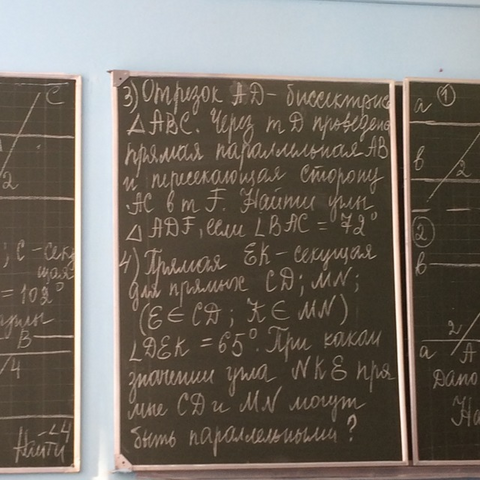 C
2
; С - секу
щая
= 102°
В
4
Найти ∠4
3) Отрезок AD - биссектриса
△ ABC. Через т D проведена
прямая параллельная AB
и пересекающая сторону
AC в т F. Найти углы
△ ADF, если ∠BAC = 72°
4) Прямая EK - секущая
для прямых CD ; MN ;
(E ∈ CD ; K ∈ MN)
∠DEK = 65°. При каком
значении угла NKE пря
мые CD и MN могут
быть параллельными ?
①
а
в
2
②
в
2
а
А
Дано
На